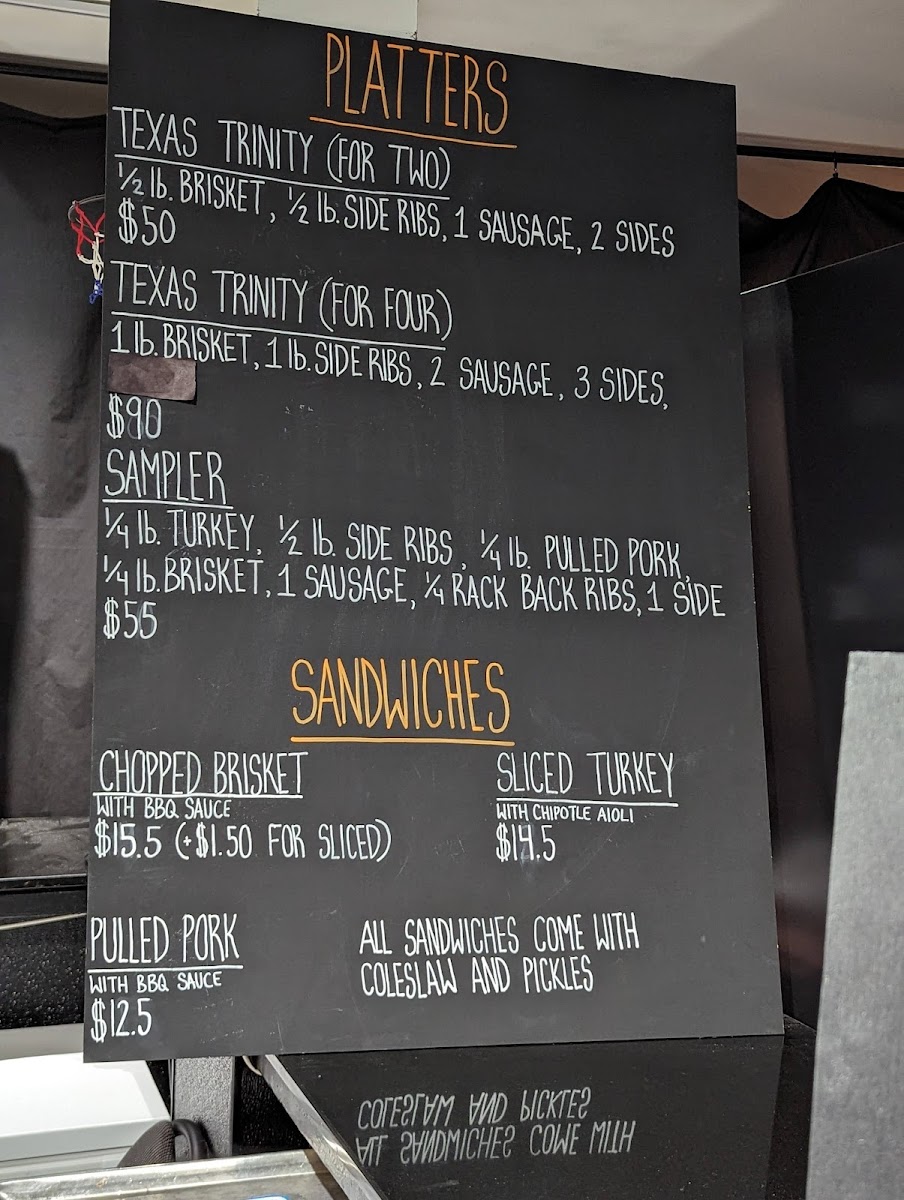 PLATTERS
TEXAS TRINITY (FOR TWO)
½ lb. BRISKET, ½ lb. SIDE RIBS, 1 SAUSAGE, 2 SIDES
$50
TEXAS TRINITY (FOR FOUR)
1 lb. BRISKET, 1 lb. SIDE RIBS, 2 SAUSAGE, 3 SIDES,
$90
SAMPLER
¼ lb. TURKEY, ½ lb. SIDE RIBS, ¼ lb. PULLED PORK,
¼ lb. BRISKET, 1 SAUSAGE, ¼ RACK BACK RIBS, 1 SIDE
$55
SANDWICHES
CHOPPED BRISKET
WITH BBQ SAUCE
$15.5 (+$1.50 FOR SLICED)
SLICED TURKEY
WITH CHIPOTLE AIOLI
$14.5
PULLED PORK
WITH BBQ SAUCE
$12.5
ALL SANDWICHES COME WITH
COLESLAW AND PICKLES